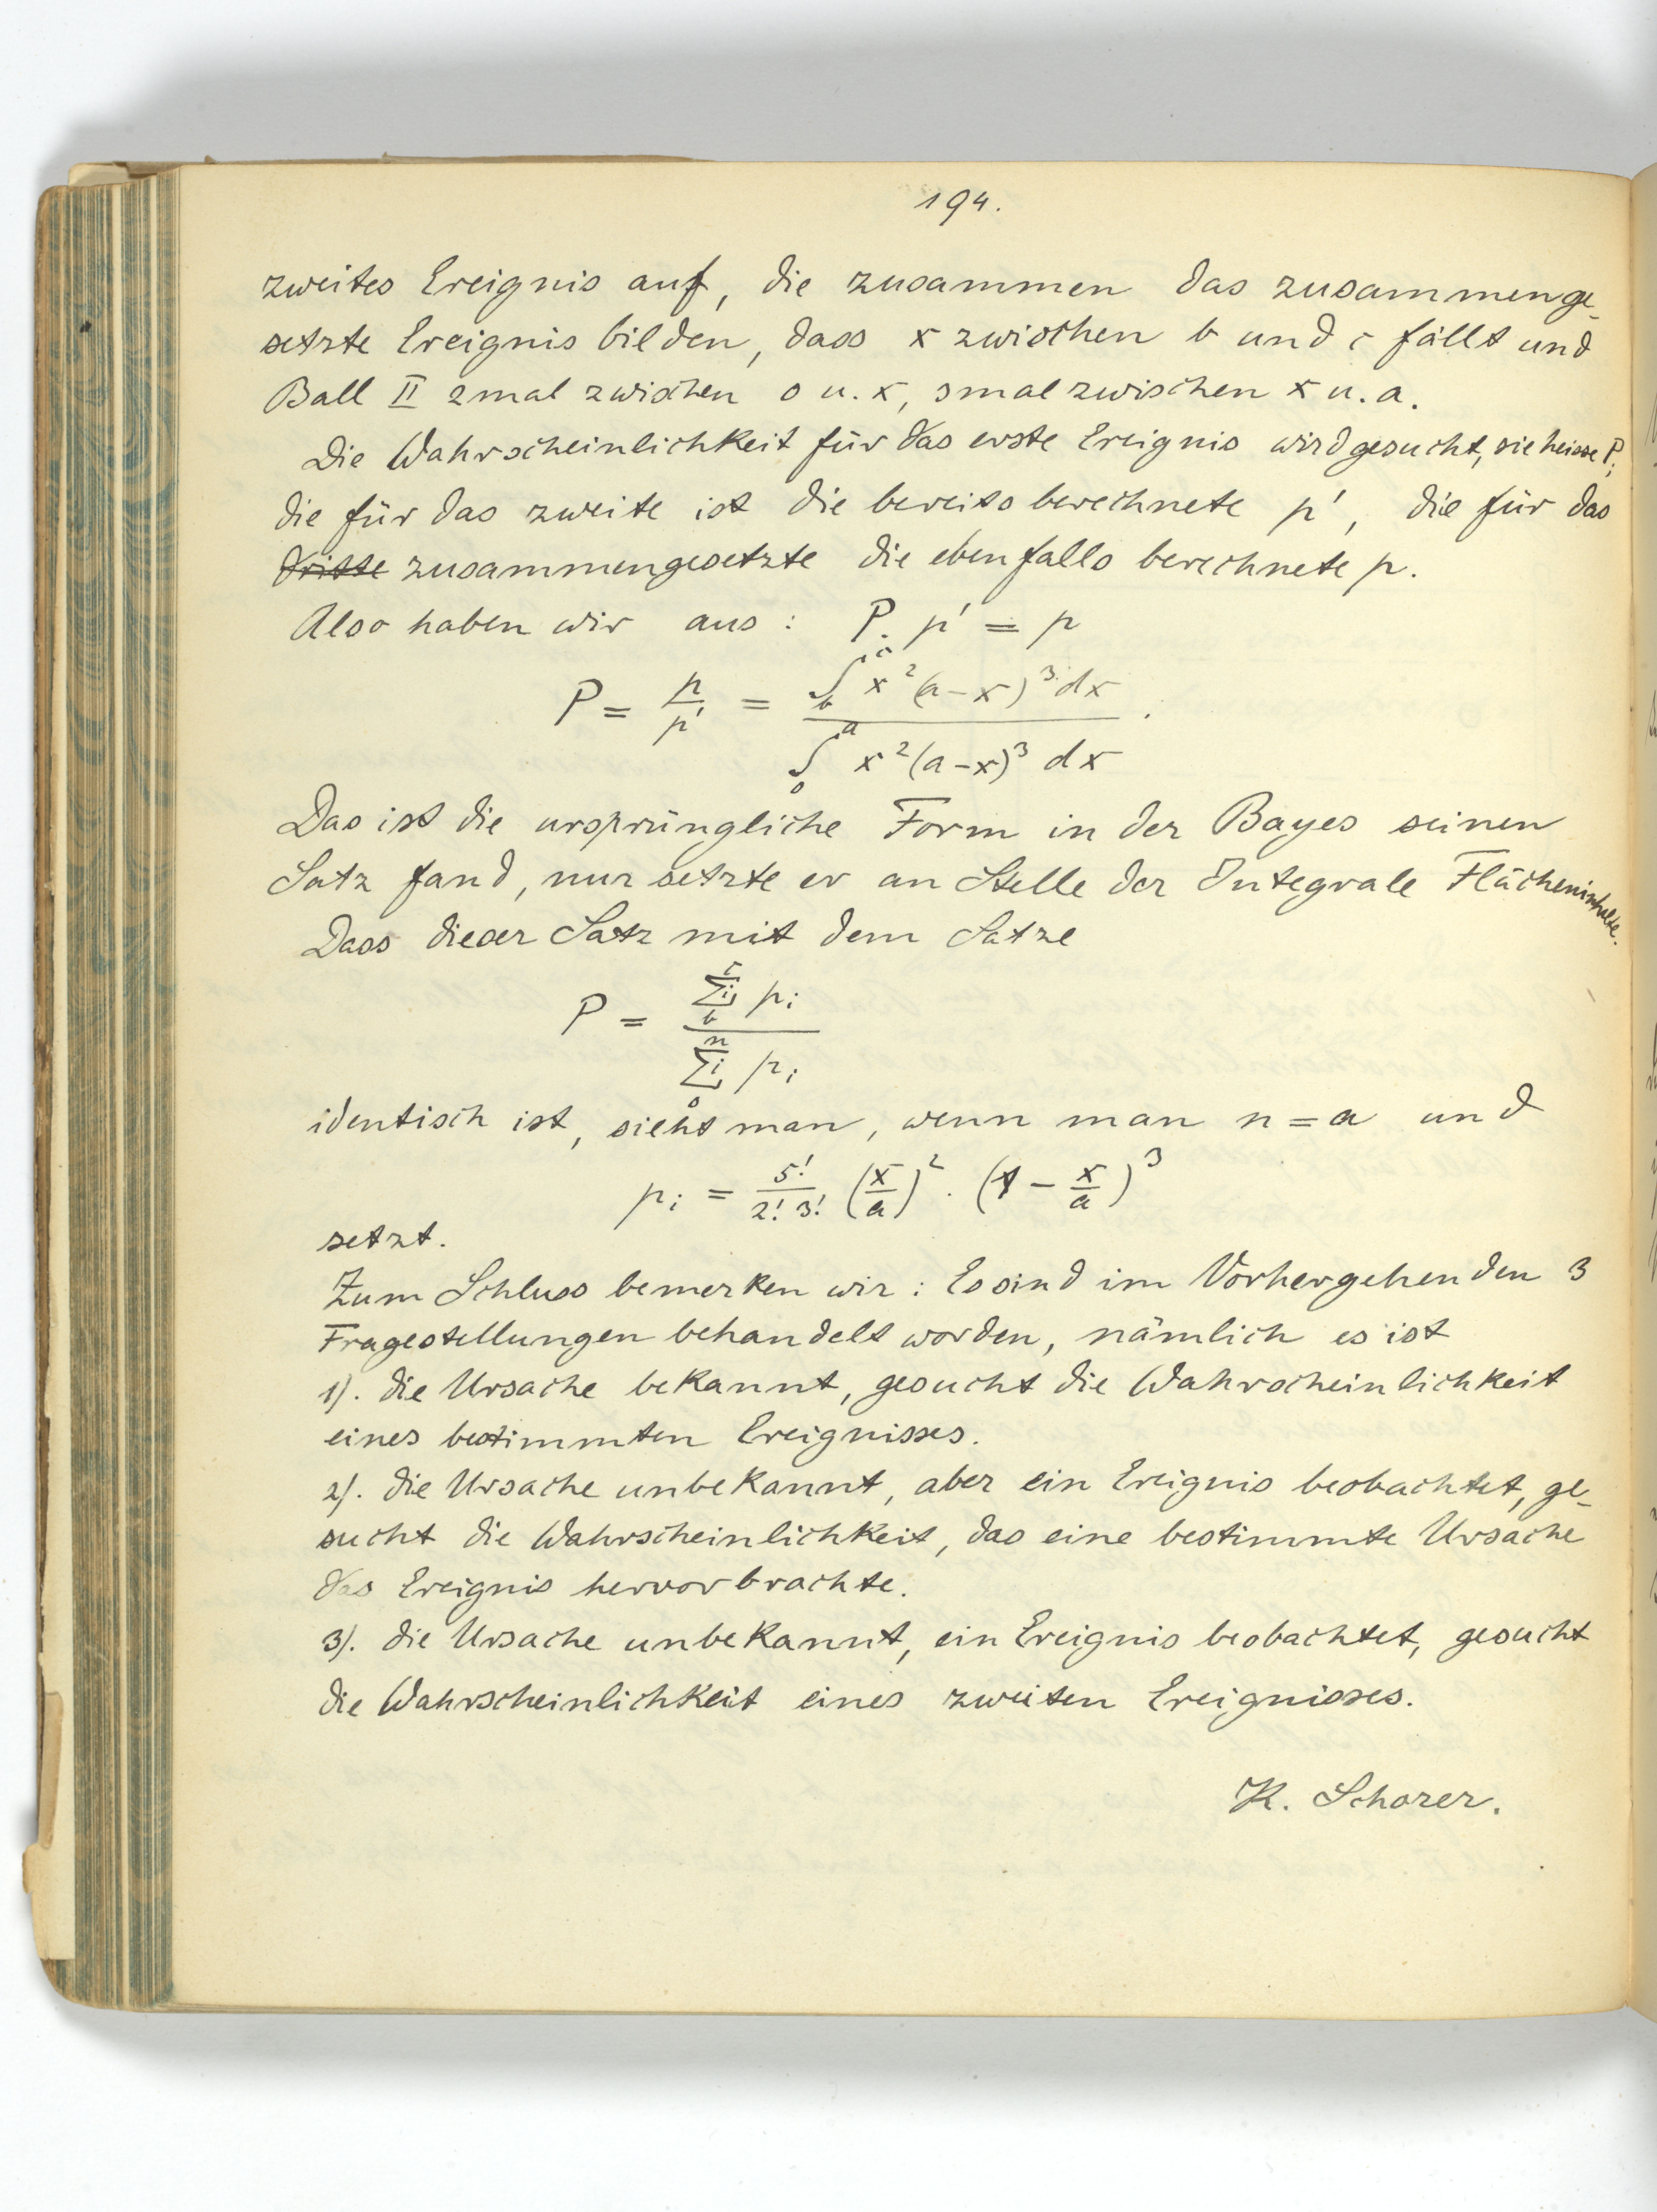 194.
zweites Ereignis auf, die zusammen das zusammenge-
setzte Ereignis bilden, dass x zwischen b und c fällt und
Ball II 2mal zwischen o u. x, 3mal zwischen x u. a.
Die Wahrscheinlichkeit für das erste Ereignis wird gesucht, sie heisse P,
die für das zweite ist die bereits berechnete p', die für das
dritte zusammengesetzte die ebenfalls berechnete p.
Also haben wir aus : P. p' = p
P = p/p' = ∫_b^c x²(a-x)³ dx / ∫_0^a x²(a-x)³ dx .
Das ist die ursprüngliche Form in der Bayes seinen
Satz fand, nur setzte er an Stelle der Integrale Flächeninhalte.
Dass dieser Satz mit dem Satze
P = Σi_b^c p_i / Σi_0^n p_i
identisch ist, sieht man, wenn man n = a und
p_i = 5!/(2! 3!) (x/a)² . (1 - x/a)³
setzt.
Zum Schluss bemerken wir : Es sind im Vorhergehenden 3
Fragestellungen behandelt worden, nämlich es ist
1). die Ursache bekannt, gesucht die Wahrscheinlichkeit
eines bestimmten Ereignisses.
2). die Ursache unbekannt, aber ein Ereignis beobachtet, ge-
sucht die Wahrscheinlichkeit, das eine bestimmte Ursache
das Ereignis hervorbrachte.
3). die Ursache unbekannt, ein Ereignis beobachtet, gesucht
die Wahrscheinlichkeit eines zweiten Ereignisses.
K. Schorer.